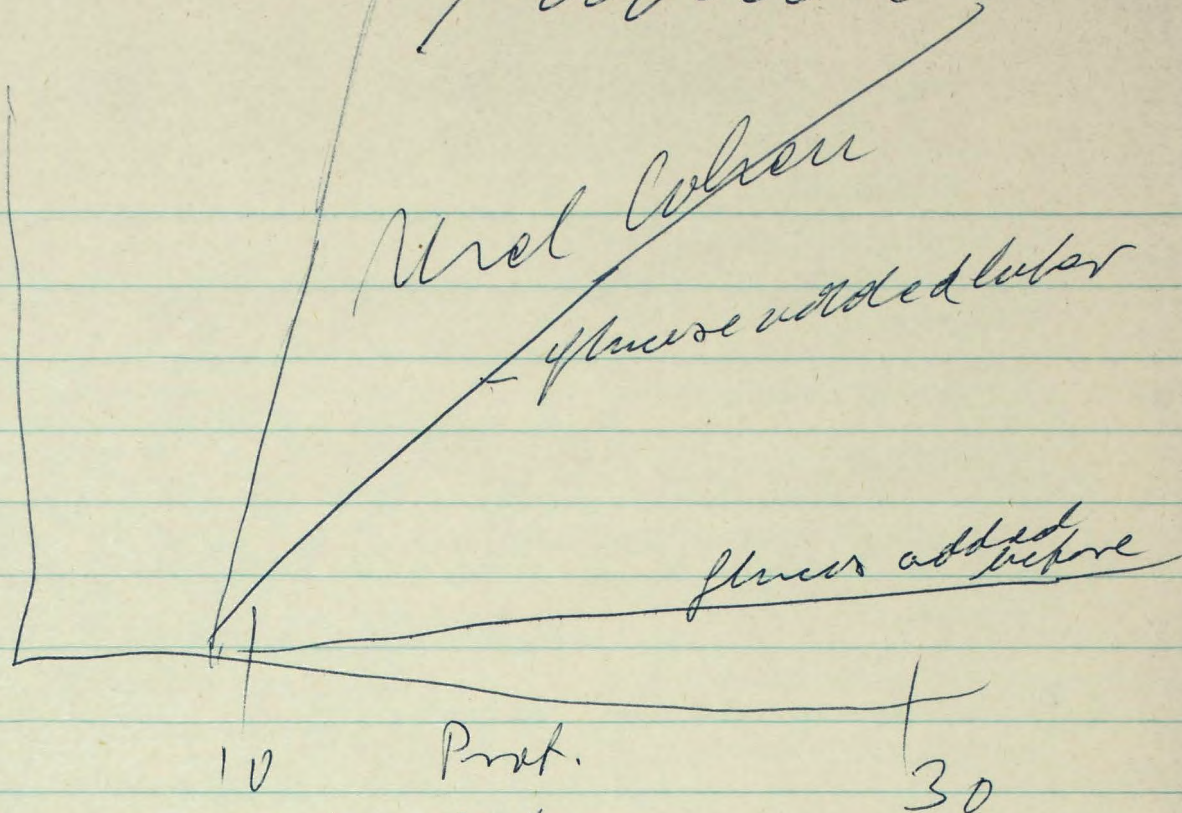 Mel Cohen
glucose added later
glucos added
before
10 Prot. 30